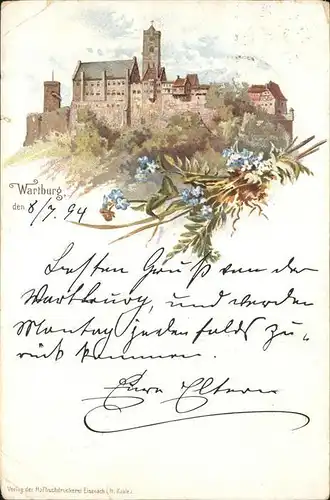 Wartburg,
den 8/7. 94
Besten Gruß von der
Wartburg, und werden
Montag jedenfalls zu„
rück kommen.
Eure Eltern
Verlag der Hofbuchdruckerei Eisenach (H. Kahle).